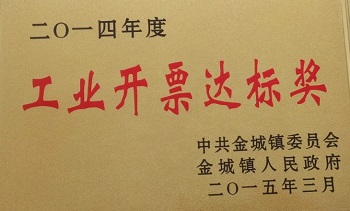 二〇一四年度
工业开票达标奖
中共金城镇委员会
金城镇人民政府
二〇一五年三月